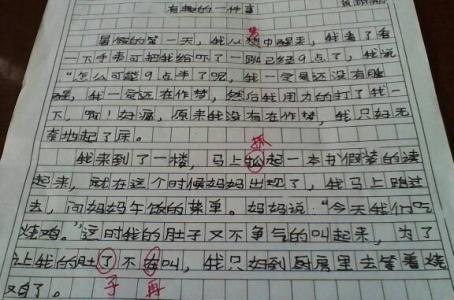 有趣的一件事
暑假的第一天，我从梦中醒来，我看了看
一下手表可把我给吓了一跳已经9点了，我说
"怎么可能9点半了呢，我一定是还没有睡
醒，我一定还在作梦，然后我用力的打了我一
下，啊！好痛，原来我没有在作梦，我只好无
奈地起了床。
抓
我来到了一楼，马上松起一本书假装的读
起来，就在这个时候妈妈出现了，我马上跑过
去，问妈妈午饭的菜单。妈妈说："今天我们吃
烧鸡。"这时我的肚子又不争气的叫起来，为了
让我的肚了不在叫，我只好到厨房里去等着烧
子 再
鸡了。